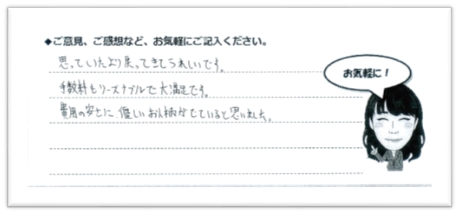 ◆ご意見、ご感想など、お気軽にご記入ください。
思っていたより戻ってきてうれしいです。
手数料もリーズナブルで大満足です。
費用の安さに、優しいお人柄がでていると思いました。
お気軽に！